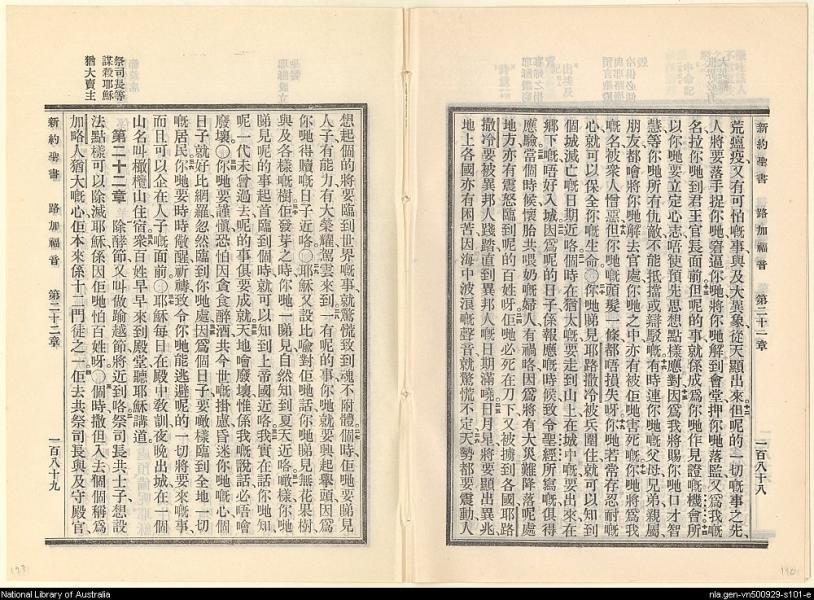 新約聖書 路加福音 第二十一章 一百八十八
荒瘟疫又有可怕嘅事與及大異象從天顯出來但呢的一切嘅事之先
人將要落手捉你哋窘逼你哋將你哋解到會堂押你哋落監又爲我嘅
名拉你哋到君王官長面前但呢的事就係成爲你哋作見證嘅機會所
以你哋要立定心志唔使預先思想點樣應對因爲我將賜你哋口才智
慧等你哋所有仇敵不能抵擋或辯駁嘅有時連你哋嘅父母兄弟親屬
朋友都會將你哋解去官處你哋之中亦有被佢哋害死嘅你哋將爲我
嘅名被衆人憎惡但你哋頭髮一條都唔損失呀你哋若常存忍耐嘅
心就可以保全你嘅生命〇你哋睇見耶路撒冷被兵圍住就可以知到
個城滅亡嘅日期近咯個時在猶太嘅要走到山上在城中嘅要出來在
鄉下嘅唔好入城因爲呢的日子係報應嘅時候致令聖經所寫嘅俱得
應驗當個時候懷胎共喂奶嘅婦人有禍咯因爲將有大災難降落呢處
地方亦有震怒臨到呢的百姓呀佢哋必死在刀下又被擄到各國耶路
撒冷要被異邦人踐踏直到異邦人嘅日期滿曉日月星將要顯出異兆
地上各國亦有困苦因海中波浪嘅聲音就驚慌不定天勢都要震動人
想起個的將要臨到世界嘅事就驚慌致到魂不附體個時佢哋要睇見
人子有能力有大榮耀駕雲來到一有呢的事你哋就要興起舉頭因爲
你哋得贖嘅日子近咯〇耶穌又設比喻對佢哋話你哋睇見無花果樹
與及各樣嘅樹佢發芽之時你哋一睇見自然知到夏天近咯噉樣你哋
睇見呢的事起首臨到個時就可以知到上帝國近咯我實在話你哋知
呢一代未曾過去呢的事俱要成就天地會廢壞惟係我嘅說話必唔會
廢壞〇你哋要謹愼恐怕因貪食醉酒共今世嘅掛慮昏迷你哋嘅心個
日子就好比網羅忽然臨到你哋處因爲個日子要噉樣臨到全地一切
嘅居民你哋要時時儆醒祈禱致令你哋能逃避呢的一切將要來嘅事
而且可以企在人子嘅面前〇耶穌每日在殿中敎訓夜晚出城在一個
山名叫橄欖山住宿衆百姓早早來到殿堂聽耶穌講道
第二十二章 除酵節又叫做瑜越節將近到咯祭司長共士子想設
法點樣可以除滅耶穌係因佢哋怕百姓呀〇個時撒但入去個個稱爲
加略人猶大嘅心佢本來係十二門徒之一佢去共祭司長與及守殿官
祭司長等
謀殺耶穌
猶大賣主
新約聖書 路加福音 第二十二章 一百八十九
National Library of Australia
nla.gen-vn500929-s101-e